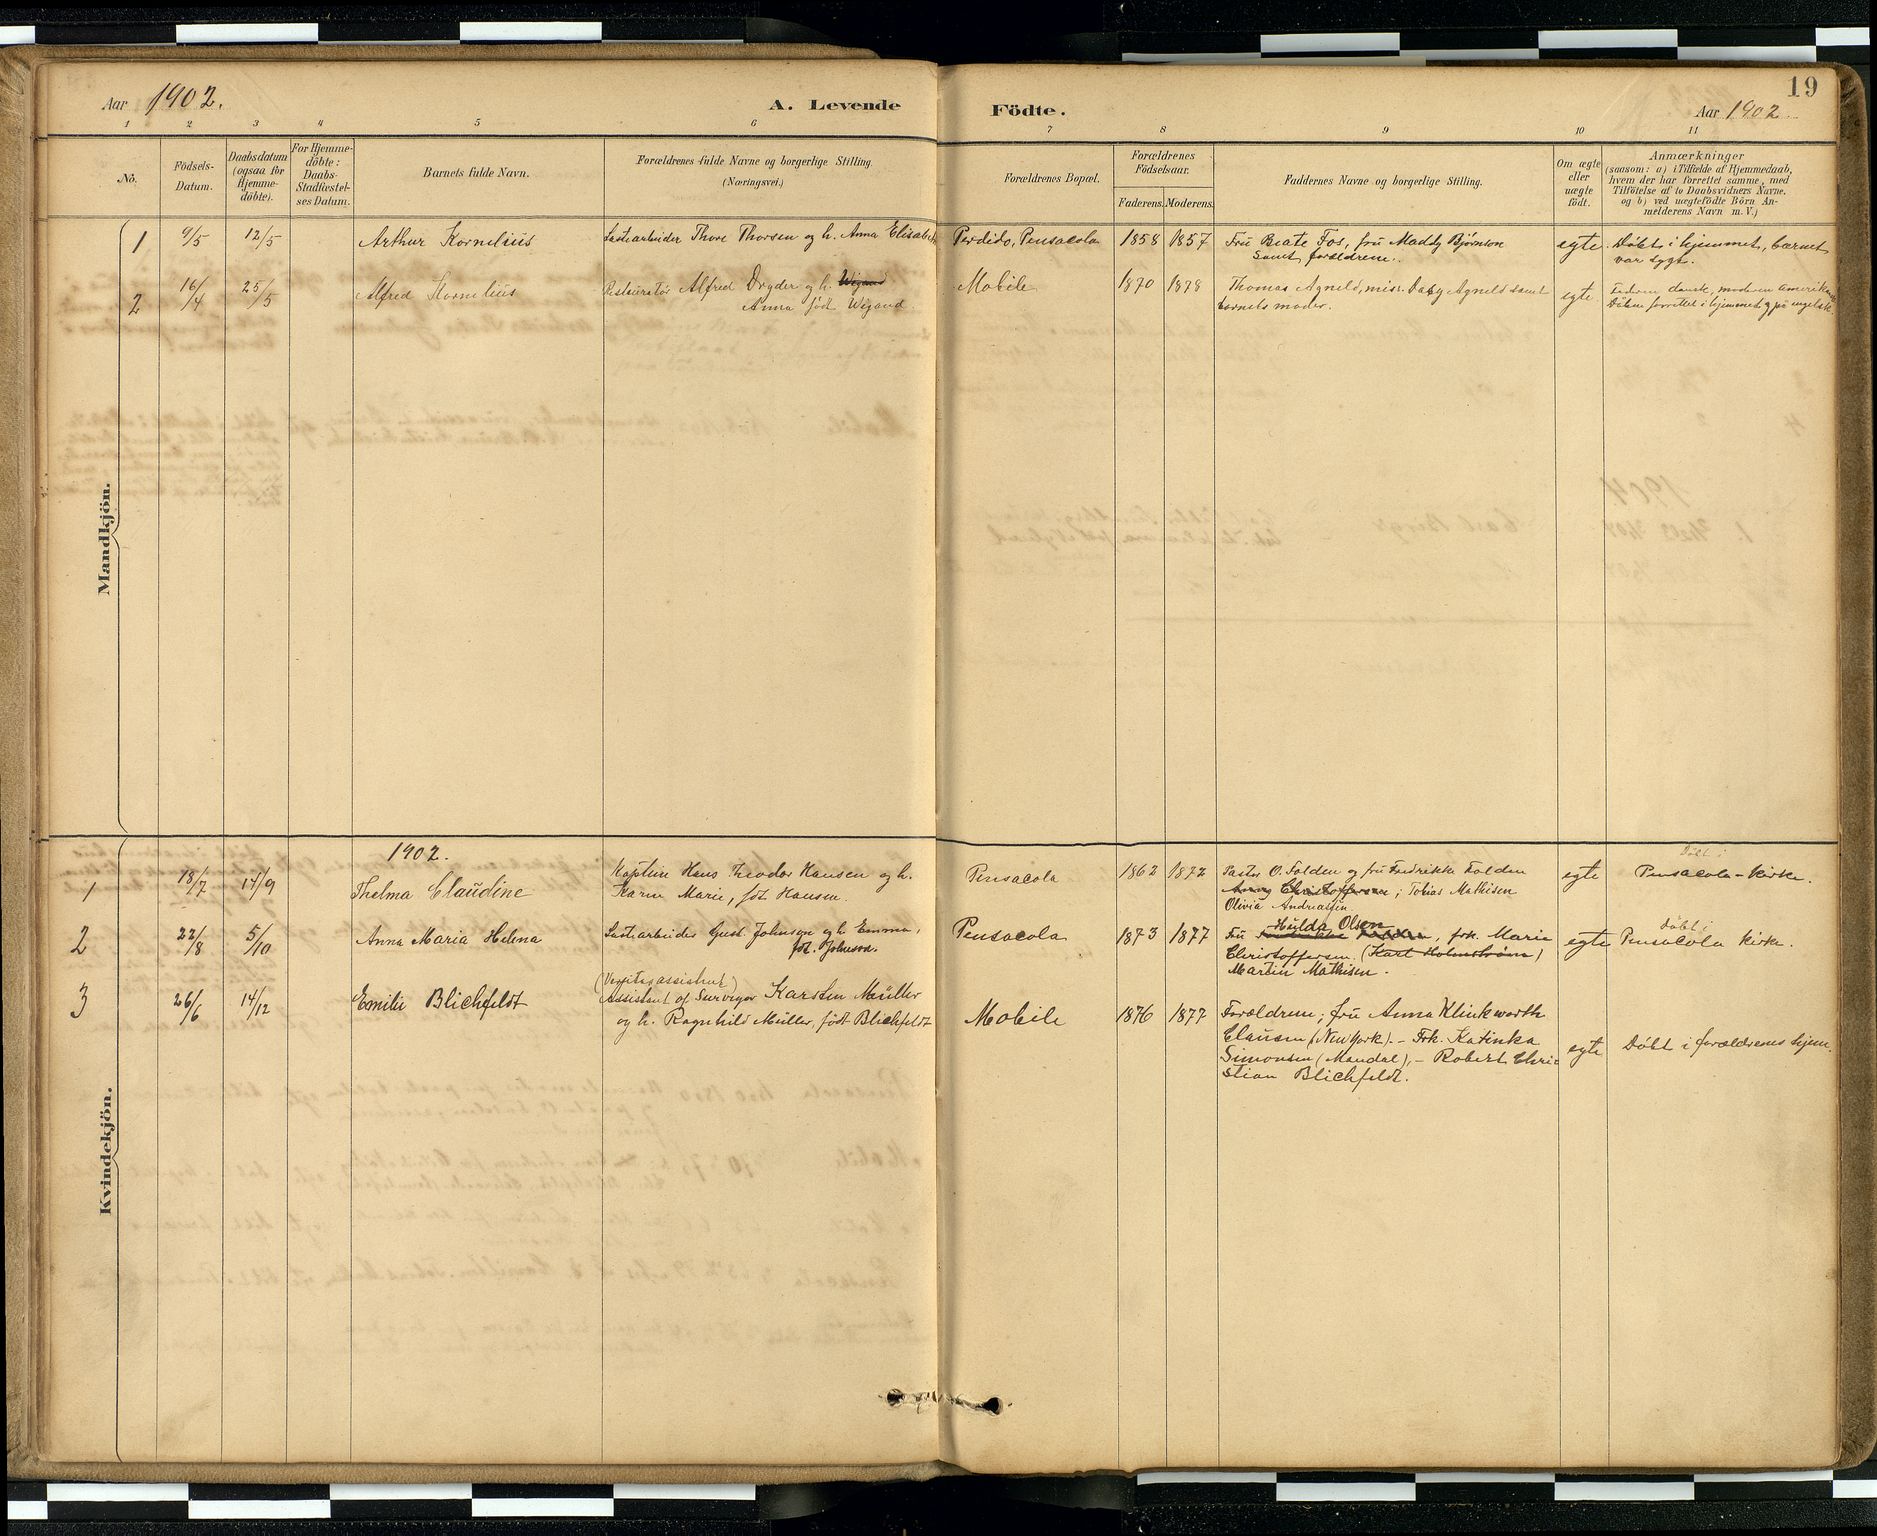 Aar 1902. A. Levende Födte. Aar 1902 19
1 2 3 4 5 6 7 8 9 10 11
No. Födsels-Datum. Daabsdatum (ogsaa for Hjemme-döbte). For Hjemme-döbte: Daabs-Stadfæstel-ses Datum. Barnets fulde Navn. Forældrenes fulde Navne og borgerlige Stilling. (Næringsvei.) Forældrenes Bopæl. Forældrenes Födselsaar. Faderens. Moderens. Faddernes Navne og borgerlige Stilling. Om ægte eller uægte födt. Anmærkninger (saasom: a) i Tilfælde af Hjemmedaab, hvem der har forrettet samme, med Tilföielse af to Daabsvidners Navne, og b) ved uægtefödte Börn An-melderens Navn m. V.)
Mandkjön.
1 9/5 12/5 Arthur Kornelius Lastearbeider Thore Thorsen og h. Anna Elisabeth Perdido, Pensacola 1858 1857 Fru Beate Fos, fru Maddy Bjørnson egte. Döbt i hjemmet, barnet
samt forældrene. var sygt.
2 16/4 25/5 Alfred Kornelius Restauratör Alfred Dryder og h. Wigand Mobile 1870 1878 Thomas Agneld, miss. Agneld samt egte Faderen dansk, moderen amerikansk
Anna födt Wigand. barnets moder. Daaben forrettet i hjemmet og på engelsk.
Kvindekjön.
1902. Döbt i
1 18/7 14/9 Thelma Claudine Kaptein Hans Theodor Hansen og h. Pensacola 1862 1872 Pastor O. Folden og fru Fredrikke Folden egte Pensacola-kirke.
Karen Marie, föt Hansen. Anny Christoffersen; Tobias Mathisen
Olivia Andreassen
2 22/8 5/10 Anna Maria Helena Lastearbeider Gust. Johnson og h. Emma, Pensacola 1873 1877 Fru Hulda Olsen, frk. Marie egte Döbt i Pensacola kirke.
föt. Johnson. Christoffersen. (Karl Holmström)
Martin Mathisen.
3 26/6 14/12 Emilie Blichfeldt (Veritasassistent) Assistent of Surveyor Karsten Müller Mobile 1876 1877 Forældrene; fru Anna Klinkworth
og h. Ragnhild Müller, födt Blichfeldt Clausen (New York). - Frk. Katinka egte Döbt i forældrenes hjem.
Simonsen (Mandal), - Robert Chri
stian Blichfeldt.